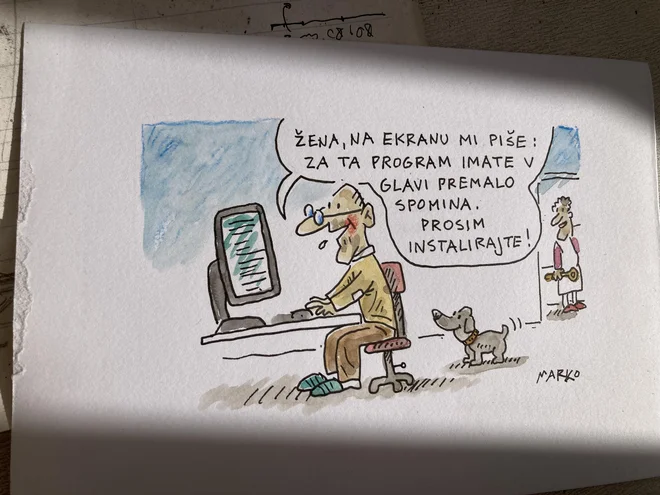 ŽENA, NA EKRANU MI PIŠE:
ZA TA PROGRAM IMATE V
GLAVI PREMALO
SPOMINA.
PROSIM
INSTALIRAJTE!
MARKO